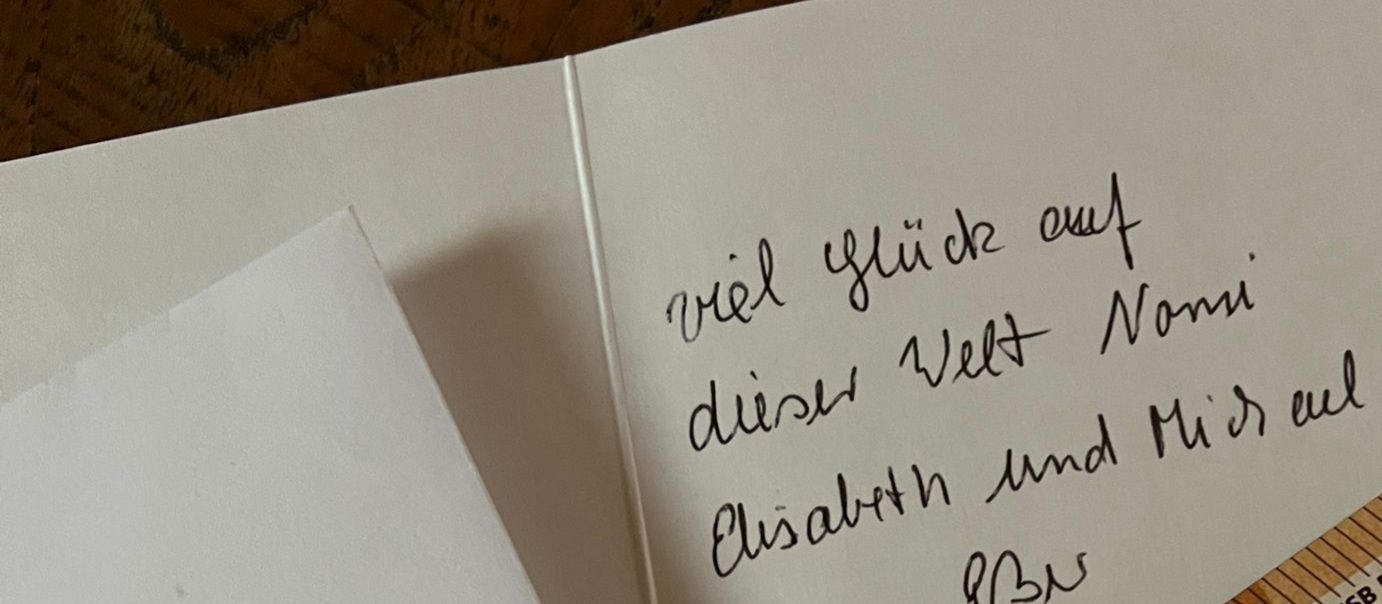 viel Glück auf
dieser Welt Nomi
Elisabeth und Michael
SB